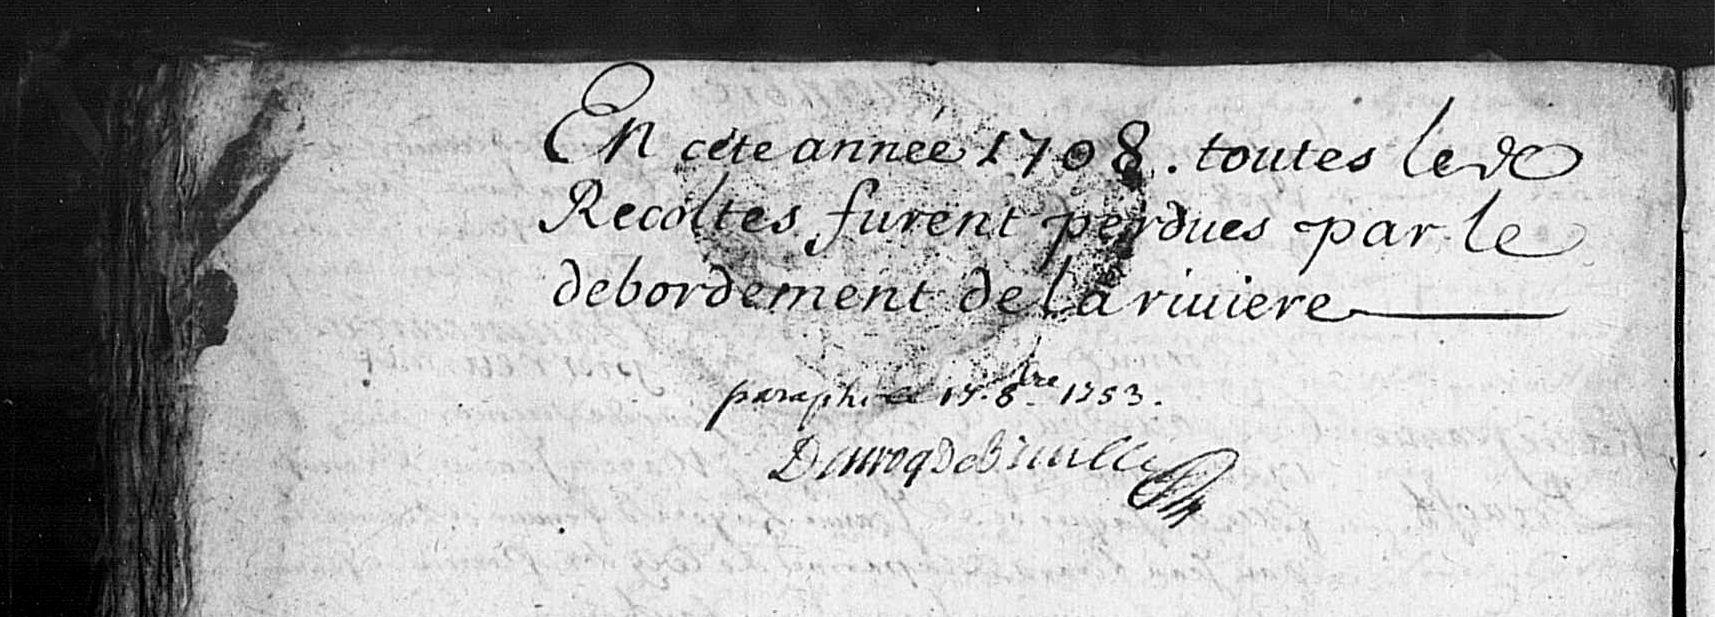 En céte année 1708. toutes les
Recoltes furent perdues par le
debordement de la riuiere
paraphé ce 15. 8bre 1753.